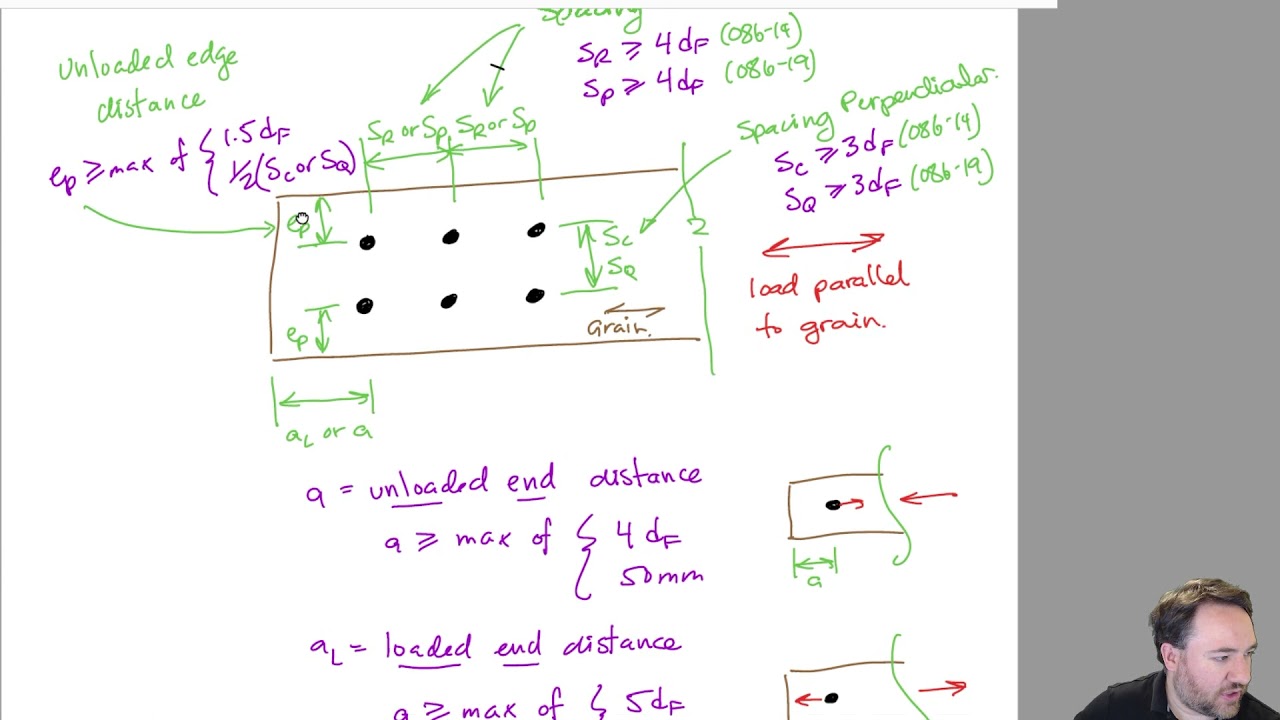 Spacing
S_R ≥ 4d_F (086-19)
S_P ≥ 4d_F (086-19)
Unloaded edge
distance
e_P ≥ max of { 1.5d_F
½(S_C or S_Q)
S_R or S_P, S_R or S_P
Spacing Perpendicular.
S_C ≥ 3d_F (086-19)
S_Q ≥ 3d_F (086-19)
e_P
S_C
S_Q
2
e_P
Grain.
load parallel
to grain.
a_L or a
a = unloaded end distance
a ≥ max of { 4d_F
50mm
a
a_L = loaded end distance
a ≥ max of { 5d_F